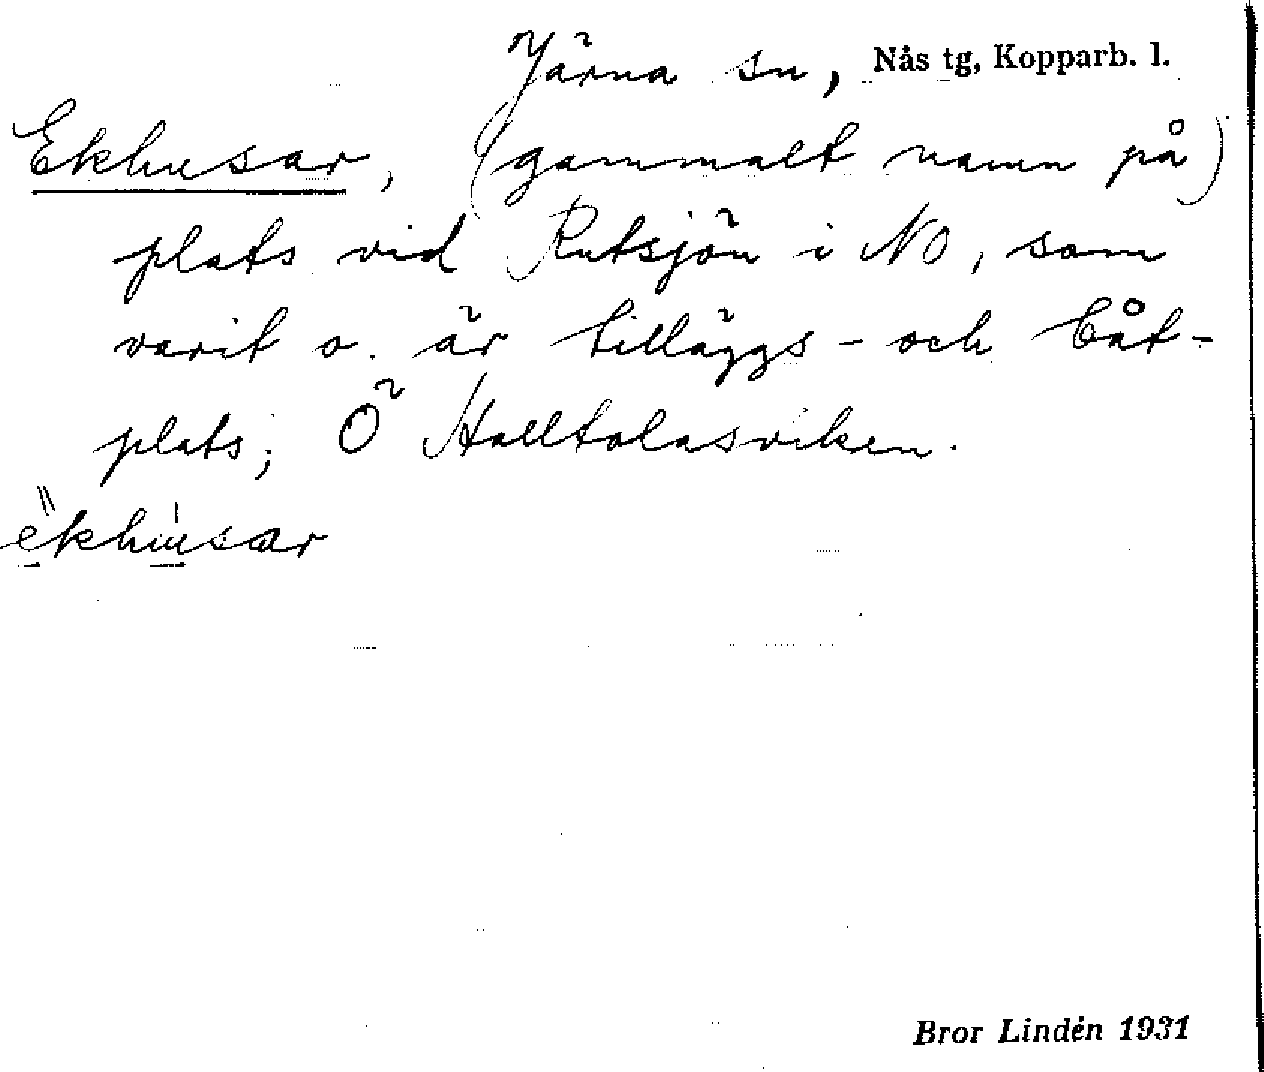 Järna sn, Nås tg, Kopparb. l.
Ekhusar, (gammalt namn på)
plats vid Rutsjön i NO, som
varit o. är tilläggs- och båt-
plats; Ö Halltolasviken.
ekhusar
Bror Lindén 1931